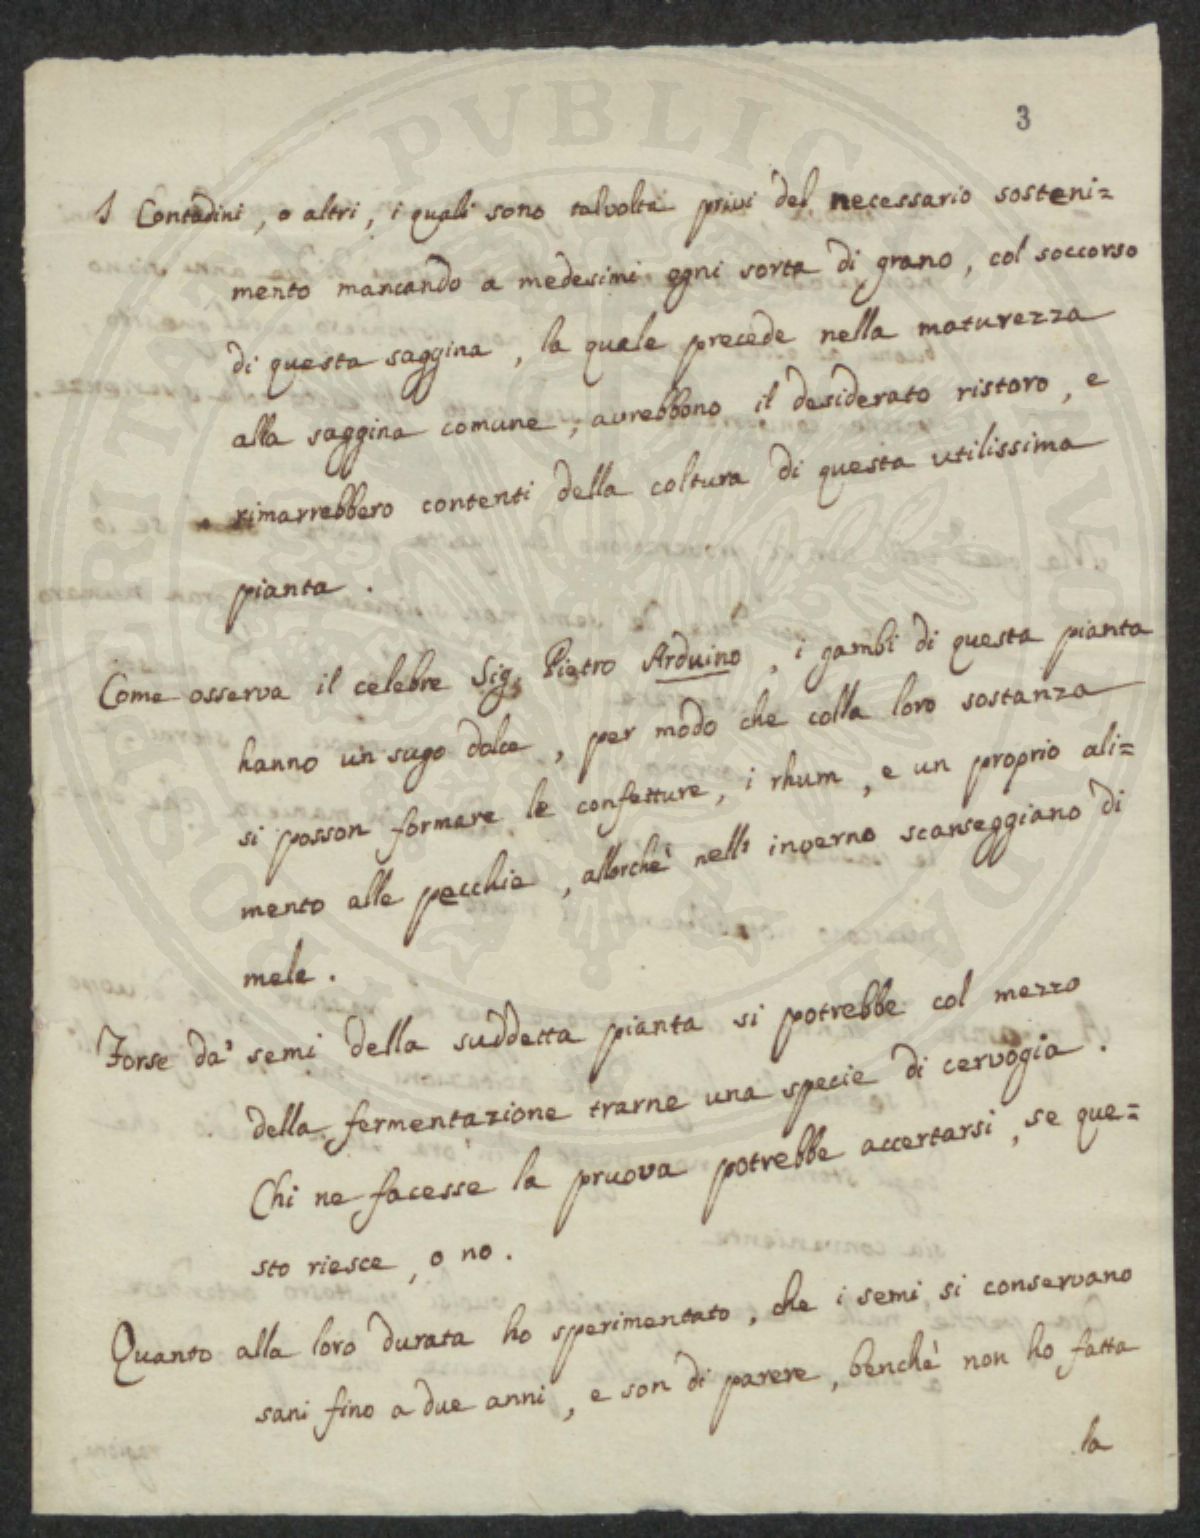 3
I Contadini, o altri, i quali sono talvolta privi del necessario sosteni=
mento mancando a medesimi ogni sorta di grano, col soccorso
di questa saggina, la quale precede nella maturezza
alla saggina comune, avrebbono il desiderato ristoro, e
rimarrebbero contenti della coltura di questa utilissima
pianta.
Come osserva il celebre Sig. Pietro Arduino, i gambi di questa pianta
hanno un sugo dolce, per modo che colla loro sostanza
si posson formare le confetture, i rhum, e un proprio ali=
mento alle pecchie, allorchè nell' inverno scarseggiano di
mele.
Forse da' semi della suddetta pianta si potrebbe col mezzo
della fermentazione trarne una specie di cervogia.
Chi ne facesse la pruova potrebbe accertarsi, se que=
sto riesce, o no.
Quanto alla loro durata ho sperimentato, che i semi si conservano
sani fino a due anni, e son di parere, benchè non ho fatta
la